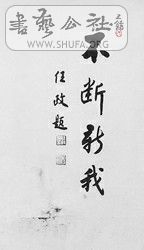 书艺公社
WWW.SHUFA.ORG
不断新我
任政题